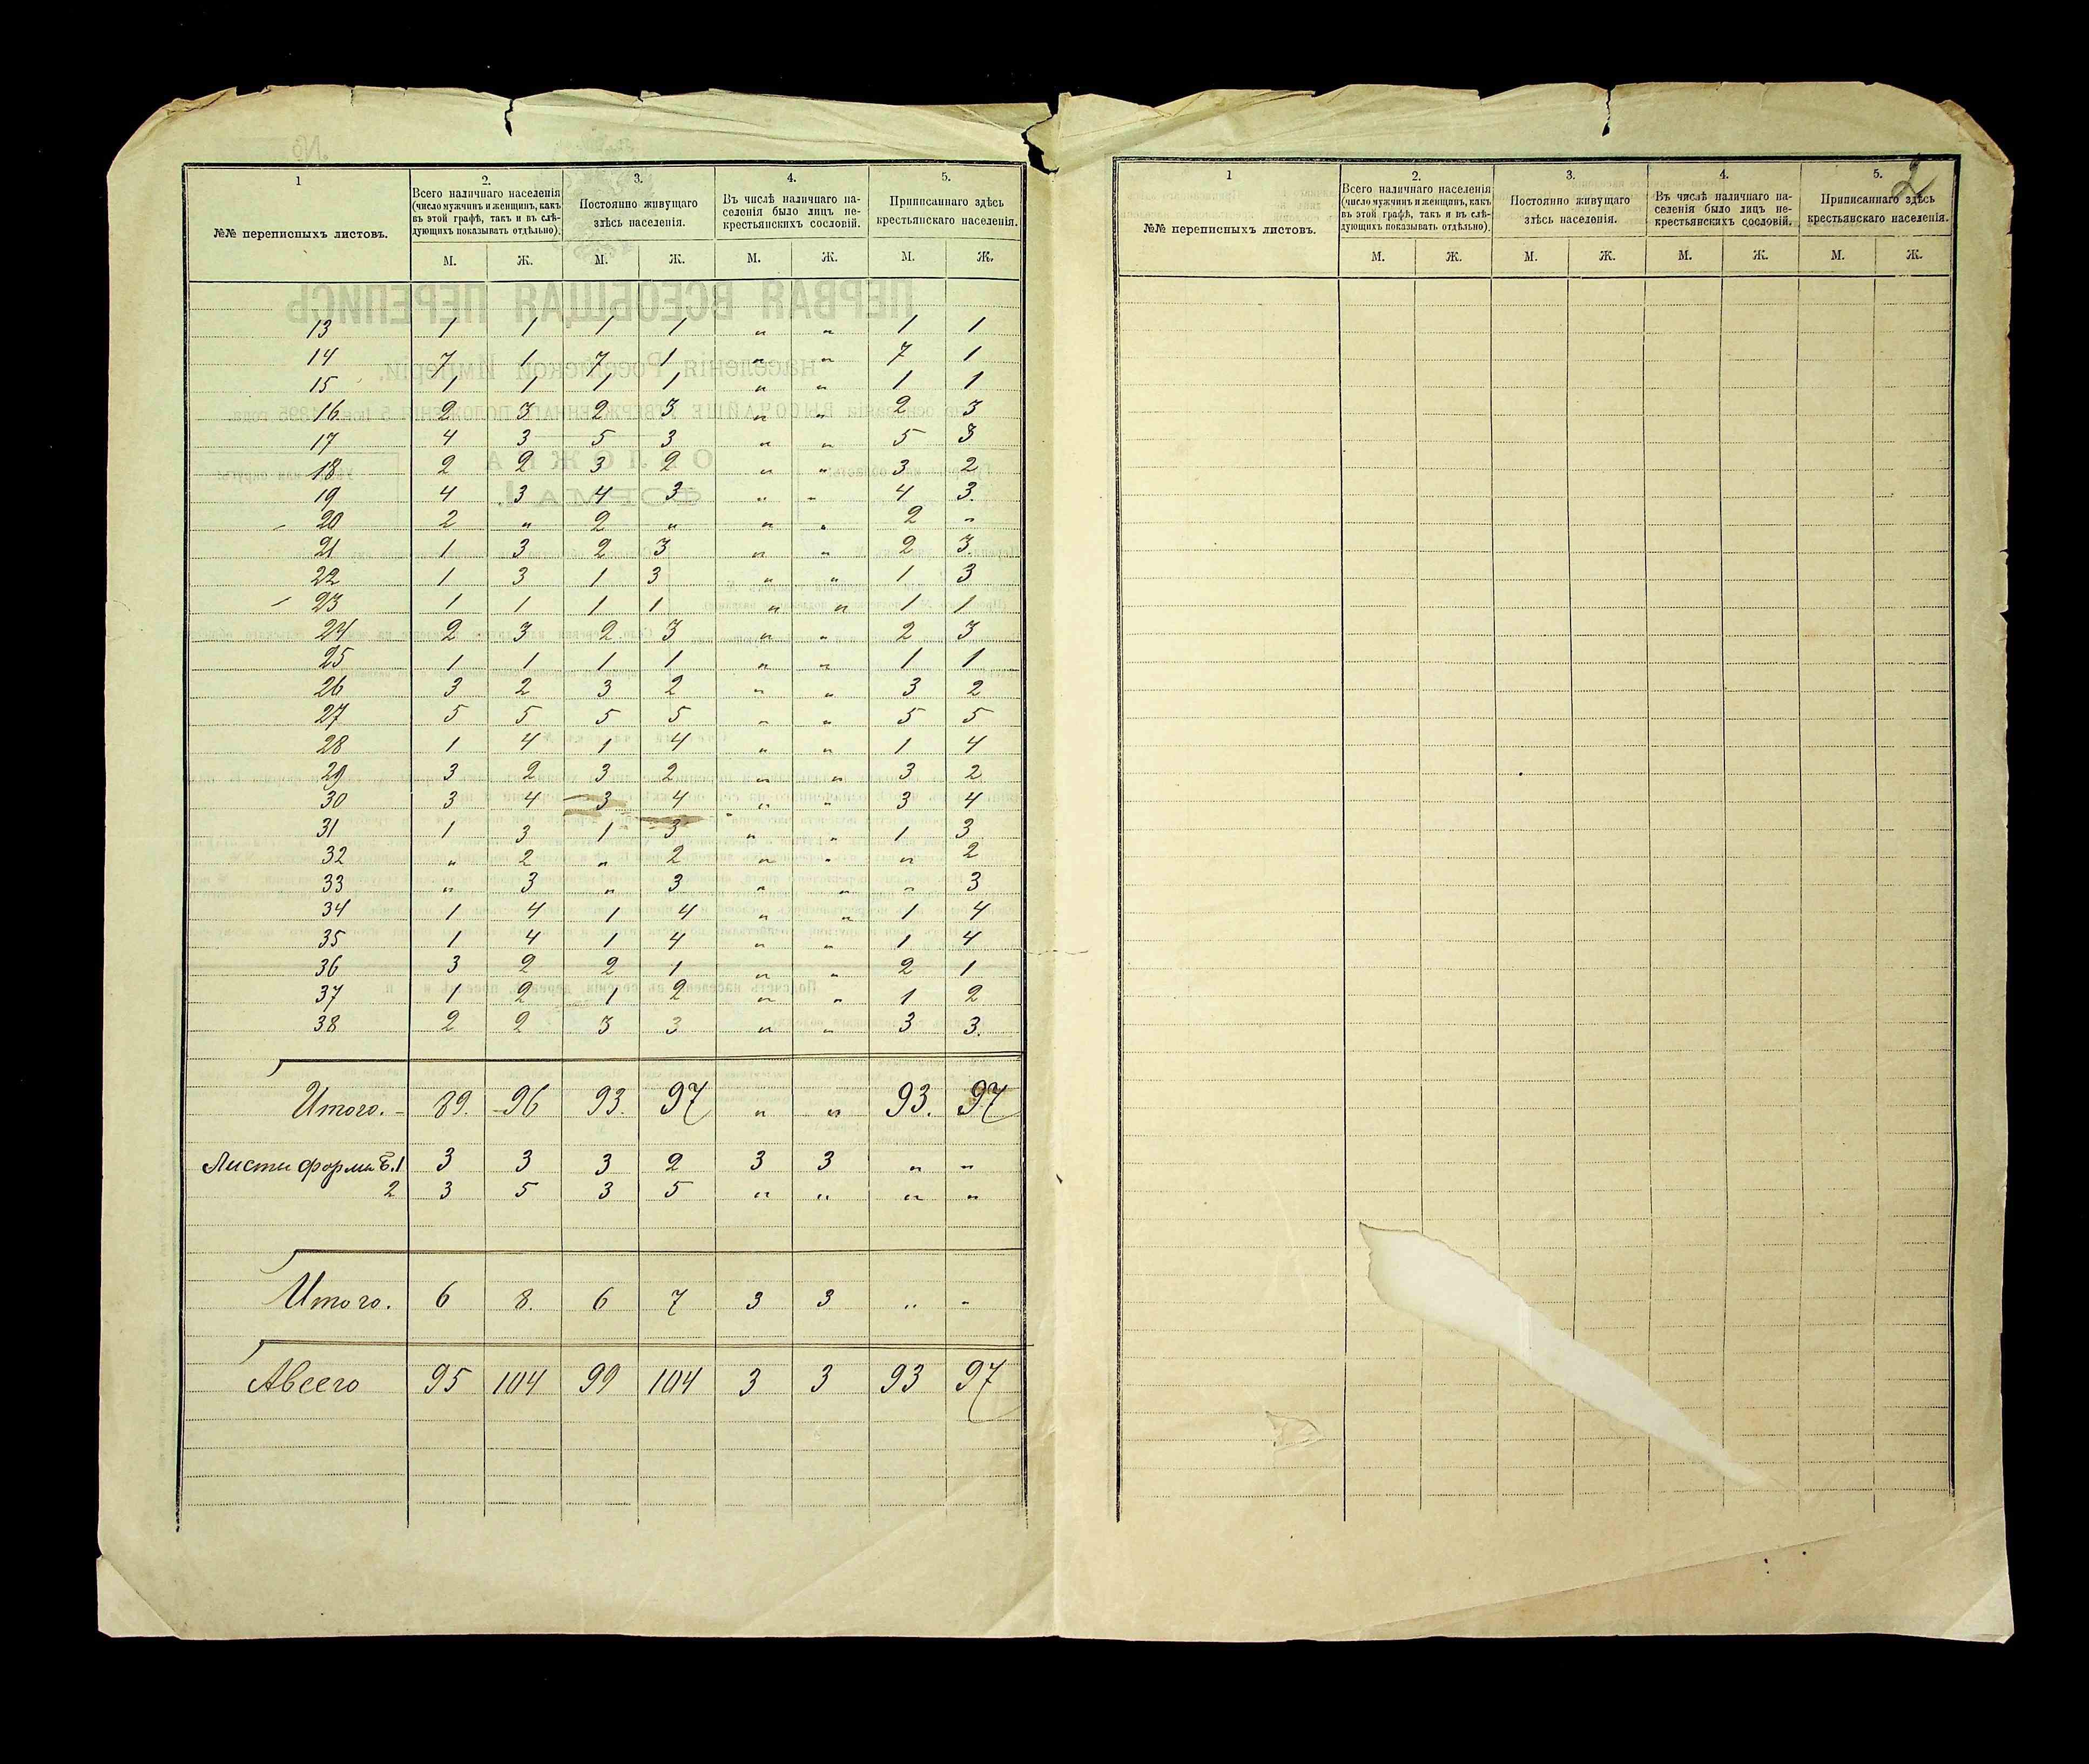 1 2. 3. 4. 5.
№№ переписныхъ листовъ. Всего наличнаго населенія (число мужчинъ и женщинъ, какъ въ этой графѣ, такъ и въ слѣдующихъ показывать отдѣльно). Постоянно живущаго здѣсь населенія. Въ числѣ наличнаго населенія было лицъ некрестьянскихъ сословій. Приписаннаго здѣсь крестьянскаго населенія.
М. Ж. М. Ж. М. Ж. М. Ж.
13 1 1 1 1 „ „ 1 1
14 7 1 7 1 „ „ 7 1
15 1 1 1 1 „ „ 1 1
16 2 3 2 3 „ „ 2 3
17 4 3 5 3 „ „ 5 3
18 2 2 3 2 „ „ 3 2
19 4 3 4 3 „ „ 4 3.
20 2 „ 2 „ „ „ 2 „
21 1 3 2 3 „ „ 2 3
22 1 3 1 3 „ „ 1 3
23 1 1 1 1 „ „ 1 1
24 2 3 2 3 „ „ 2 3
25 1 1 1 1 „ „ 1 1
26 3 2 3 2 „ „ 3 2
27 5 5 5 5 „ „ 5 5
28 1 4 1 4 „ „ 1 4
29 3 2 3 2 „ „ 3 2
30 3 4 3 4 „ „ 3 4
31 1 3 1 3 „ „ 1 3
32 „ 2 „ 2 „ „ „ 2
33 „ 3 „ 3 „ „ „ 3
34 1 4 1 4 „ „ 1 4
35 1 4 1 4 „ „ 1 4
36 3 2 2 1 „ „ 2 1
37 1 2 1 2 „ „ 1 2
38 2 2 3 3 „ „ 3 3.
Итого. 89. 96 93. 97 „ „ 93. 97
Листи форми Б. 1 3 3 3 2 3 3 „ „
2 3 5 3 5 „ „ „ „
Итого. 6 8. 6 7 3 3 „ „
Авсего 95 104 99 104 3 3 93 97
2
1 2. 3. 4. 5.
№№ переписныхъ листовъ. Всего наличнаго населенія (число мужчинъ и женщинъ, какъ въ этой графѣ, такъ и въ слѣдующихъ показывать отдѣльно). Постоянно живущаго здѣсь населенія. Въ числѣ наличнаго населенія было лицъ некрестьянскихъ сословій. Приписаннаго здѣсь крестьянскаго населенія.
М. Ж. М. Ж. М. Ж. М. Ж.